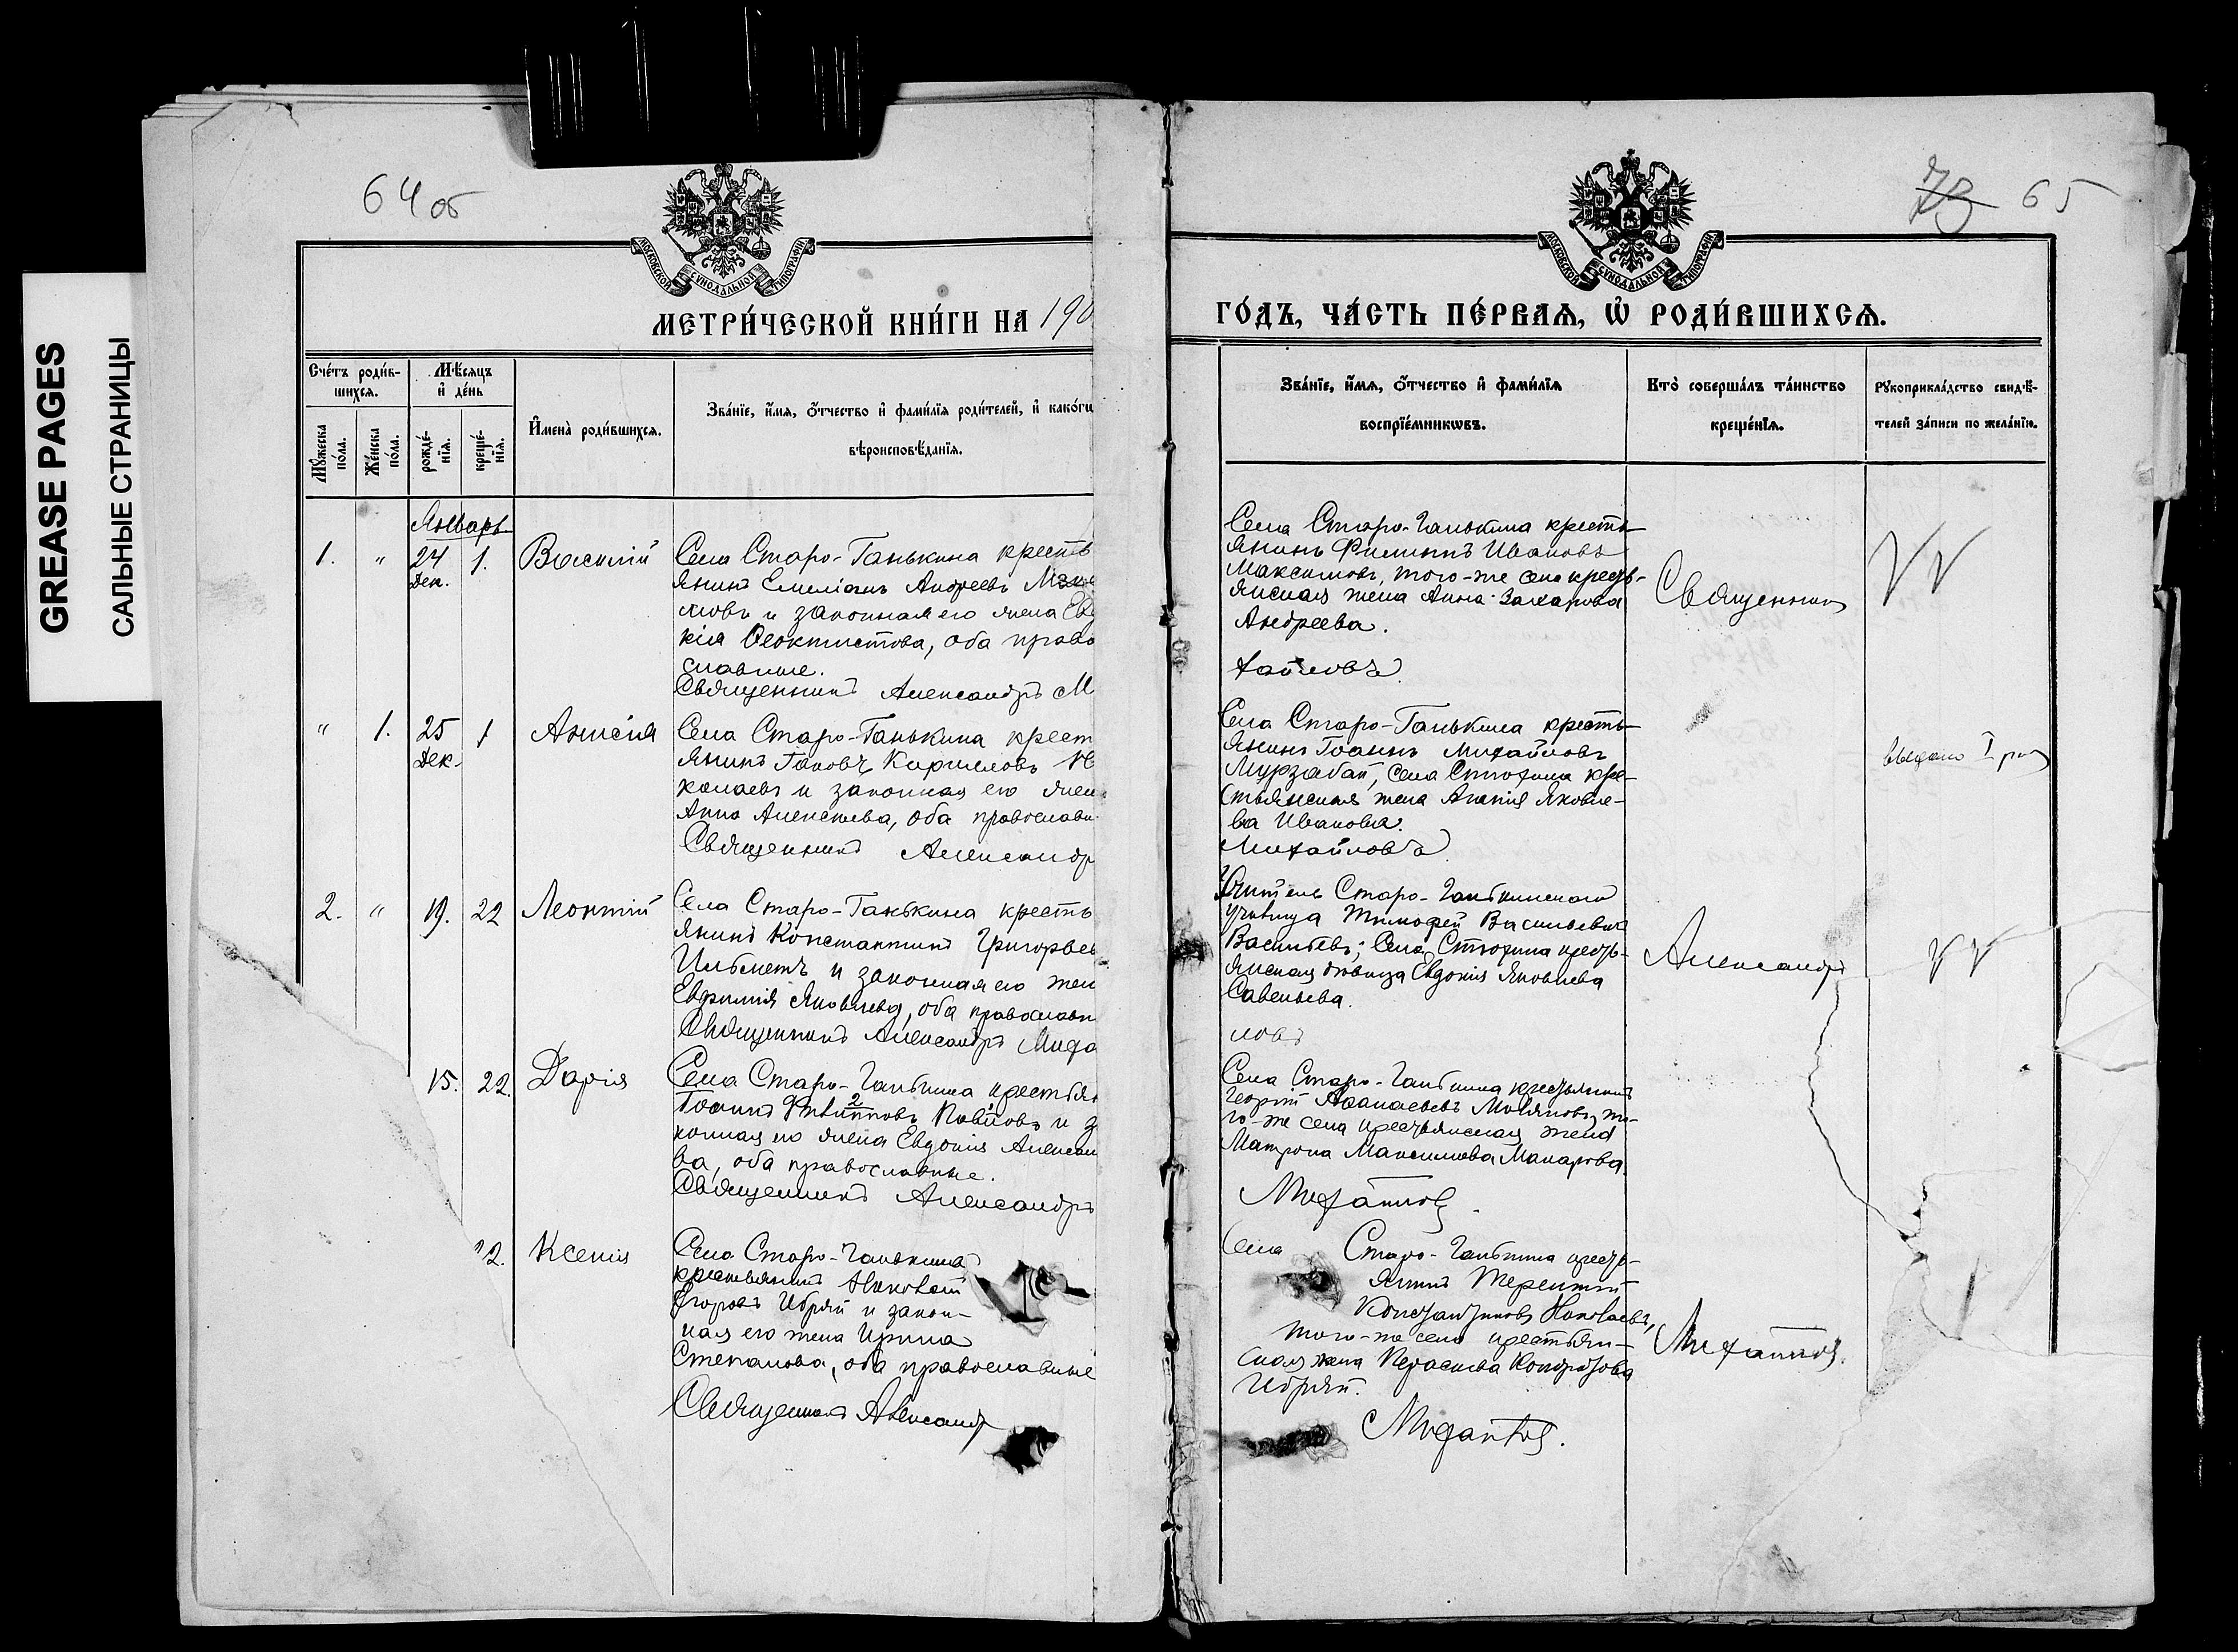 GREASE PAGES
САЛЬНЫЕ СТРАНИЦЫ
64 об
МОСКОВСКОЙ СѴНОДАЛЬНОЙ ТИПОГРАФІИ
МЕТРИ́ЧЕСКОЙ КНИ́ГИ НА 190
Сче́тъ роди́в-
шихсѧ.
Мѣ́сѧцъ
и҆ де́нь
И҆мена̀ роди́вшихсѧ.
Зва́нїе, и҆́мѧ, ѻ҆́тчество и҆ фами́лїѧ роди́телей, и҆ како́гѡ
вѣроисповѣ́данїѧ.
Мꙋ́жеска
по́ла.
Же́нска
по́ла.
рожде́-
нїѧ.
креще́-
нїѧ.
Январь
1. " 24 Дек. 1. Василій
Села Старо-Ганькина кресть
янинъ Емеліанъ Андреевъ
мовъ и законная его жена Ев
кія Ѳеоктистова, оба право
славные.
Священникъ Александръ М
" 1. 25 Дек. 1 Анисія
Села Старо-Ганькина крест
янинъ Іаковъ Кирилловъ Н
колаевъ и законная его жен
Анна Алексеева, оба православн
Священникъ Александр
2. " 19. 22 Леонтій
Села Старо-Ганькина кресть
янинъ Константинъ Григорьев
и законная его жен
Евфимія Яковлева, оба православн
Священникъ Александръ Миха
15. 22. Дарія
Села Старо-Ганькина крестья
Іоаннъ Филипповъ и з
конная его жена Евдокія Алексан
ва, оба православные.
Священникъ Александръ
22. Ксенія
Села Старо-Ганькина
крестьянинъ Николай
Егоровъ Ибряй и закон-
ная его жена Ирина
Степанова, оба православные
Священникъ Александр
73 65
МОСКОВСКОЙ СѴНОДАЛЬНОЙ ТИПОГРАФІИ
ГО́ДЪ, ЧА́СТЬ ПЕ́РВАѦ, Ѡ҆ РОДИ́ВШИХСѦ.
Зва́нїе, и҆́мѧ, ѻ҆́тчество и҆ фами́лїѧ
воспрїе́мникѡвъ.
Кто̀ соверша́лъ та́инство
креще́нїѧ.
Рꙋкоприкла́дство свидѣ́-
телей за́писи по жела́нїю.
Села Старо-Ганькина кресть-
янинъ Филиппъ Ивановъ
Максимовъ, того-же села кресть-
янская жена Анна Захарова
Андреева.
хайловъ.
Священникъ
Села Старо-Ганькина кресть-
янинъ Іоаннъ Михайловъ
Мурзабай, села Стюхина кре-
стьянская жена Агапія Яковле-
ва Иванова.
Михайловъ
выдано I раз
Учитель Старо-Ганькинскаго
училища Тимофей Васильевичъ
Васильевъ; села Стюхина кресть-
янская дѣвица Евдокія Яковлева
Савельева.
ловъ
Александръ
Села Старо-Ганькина крестьянинъ
Георгій Аѳанасьевъ то-
го-же села крестьянская жена
Матрона Максимова Макарова.
Михайловъ.
Села Старо-Ганькина кресть-
янинъ Терентій
Константиновъ Николаевъ,
того-же села крестьян-
ская жена Кондратова
Ибряй.
Михайловъ.
Михайловъ.